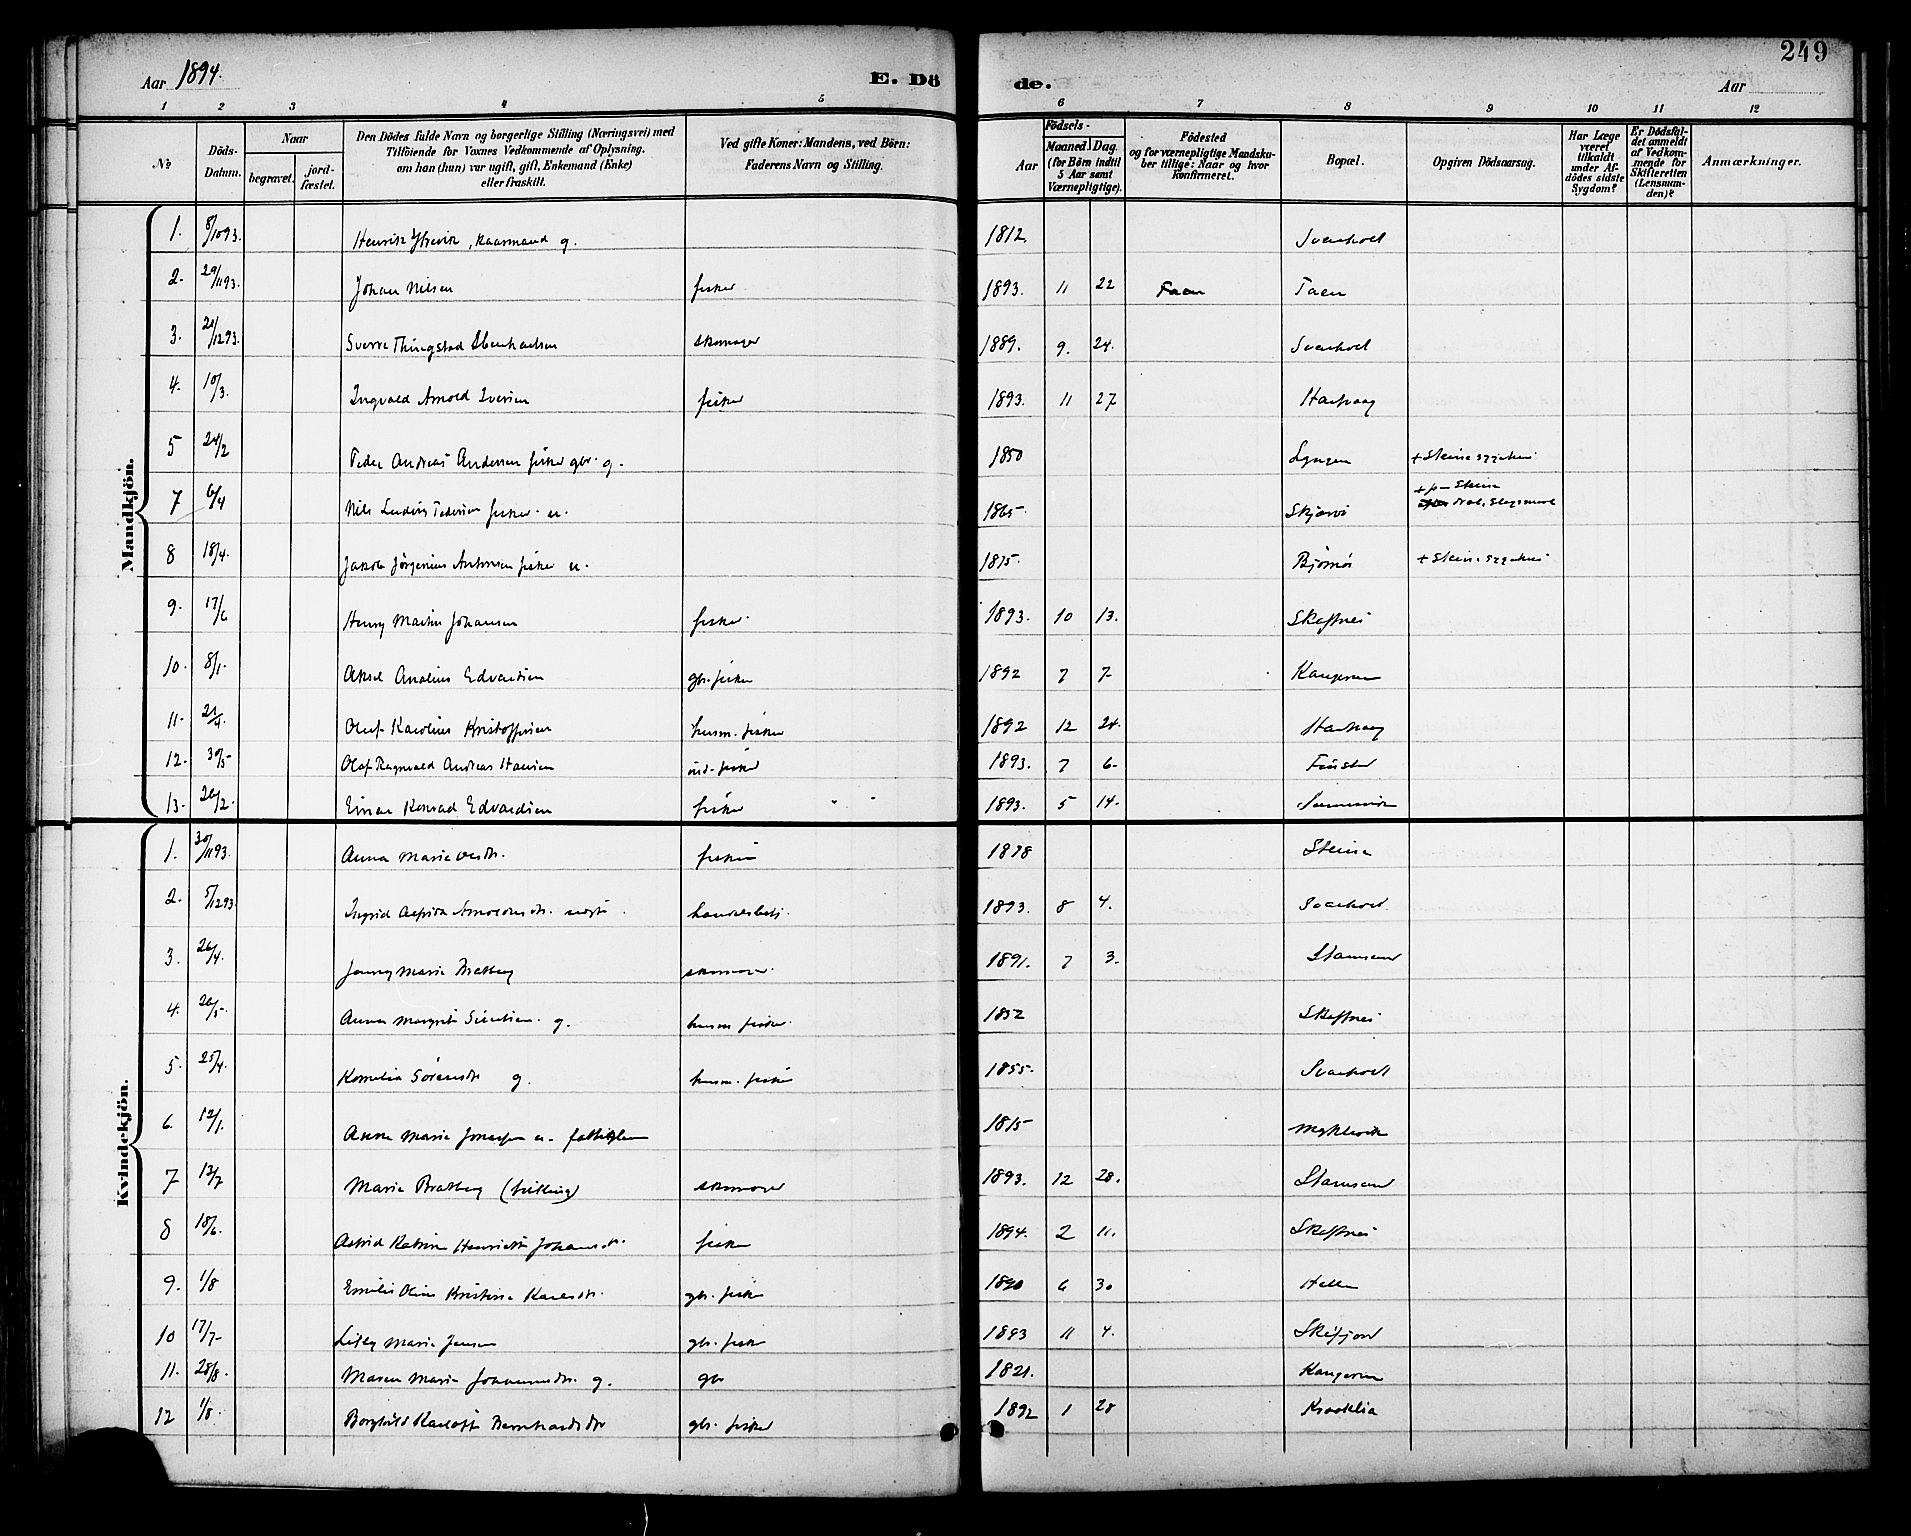 249
Aar 1894. E. Dö de. Aar
1 2 3 4 5 6 7 8 9 10 11 12
№ Döds-Datum. Naar begravet. jord-fæstet. Den Dödes fulde Navn og borgerlige Stilling (Næringsvei) med Tilföiende for Voxnes Vedkommende af Oplysning, om han (hun) var ugift, gift, Enkemand (Enke) eller fraskilt. Ved gifte Koner: Mandens, ved Börn: Faderens Navn og Stilling. Födsels- Aar Maaned Dag. (for Börn indtil 5 Aar samt Værnepligtige). Födested og for værnepligtige Mandskaber tillige: Naar og hvor konfirmeret. Bopæl. Opgiven Dödsaarsag. Har Læge været tilkaldt under Afdödes sidste Sygdom? Er Dödsfaldet anmeldt af Vedkommende for Skifteretten (Lensmanden)? Anmærkninger.
Mandkjön.
1. 8/10 93. Henrik , kaarmand g. 1812. Svarholt
2. 29/11 93. Johan Nilsen fisker 1893. 11 22 Taen Taen
3. 20/12 93. Sverre Thingstad skomager 1889. 9. 24. Svarholt
4. 10/3. Ingvald Arnold Iversen fisker 1893. 11 27
5 24/2 Peder Andreas Andersen fisker gbr. g. 1850 Lyngen + Steine sygehus
7 6/4 Nils Ludvig Pedersen fisker u. 1865 Skjærvö + p Steine
8 18/4. Jakob Jörgenius Antonsen fisker u. 1875 Bjömö + Steine sygehus
9. 17/6 Henry Martin Johansen fisker 1893. 10 13. Skaftnes
10. 8/1. Aksel Analius Edvardsen gbr. fisker 1892 7 7 Kangerur
11. 21/4. Oluf Karolius Kristoffersen husm. fisker 1892 12 24.
12. 30/5 Olaf Ragnvald Andreas Hansen ind. fisker 1893. 7 6
13. 26/2. Einar Konrad Edvardsen fisker " " 1893. 5 14.
Kvindekjön.
1. 30/11 93. Anna Marie fisker 1878 Steine
2. 5/12 93. Ingrid Alfrida 1893. 8 4. Svarholt
3. 26/4 Jenny Marie Bratberg skomager 1891. 7 3. Stamsund
4. 26/5 Anna Margrit g. husm. fisker 1852 Skaftnes
5. 25/4. Kornelia Sörensdtr g. husm. fisker 1855. Svarholt
6. 12/1. Anna Marie u. 1815
7 13/7 Marie Bratberg (tvilling) skomager 1893. 12 28. Stamsund
8 18/6. Astrid Katrine Henriette Johansdtr. fisker 1894. 2 11. Skaftnes
9. 1/8 Emilie Oline Kristine Karlsdtr. gbr. fisker 1890 6 30 Helle
10 17/7 Marie Jensen gbr. fisker 1893 11 4. Skifjord
11. 28/8. Maren Marie Johannesdtr. g. gbr 1821. Kangerur
12 1/8. Borghild Karlotte Bernhardsdtr gbr. fisker 1892 1 28 Kraaklia